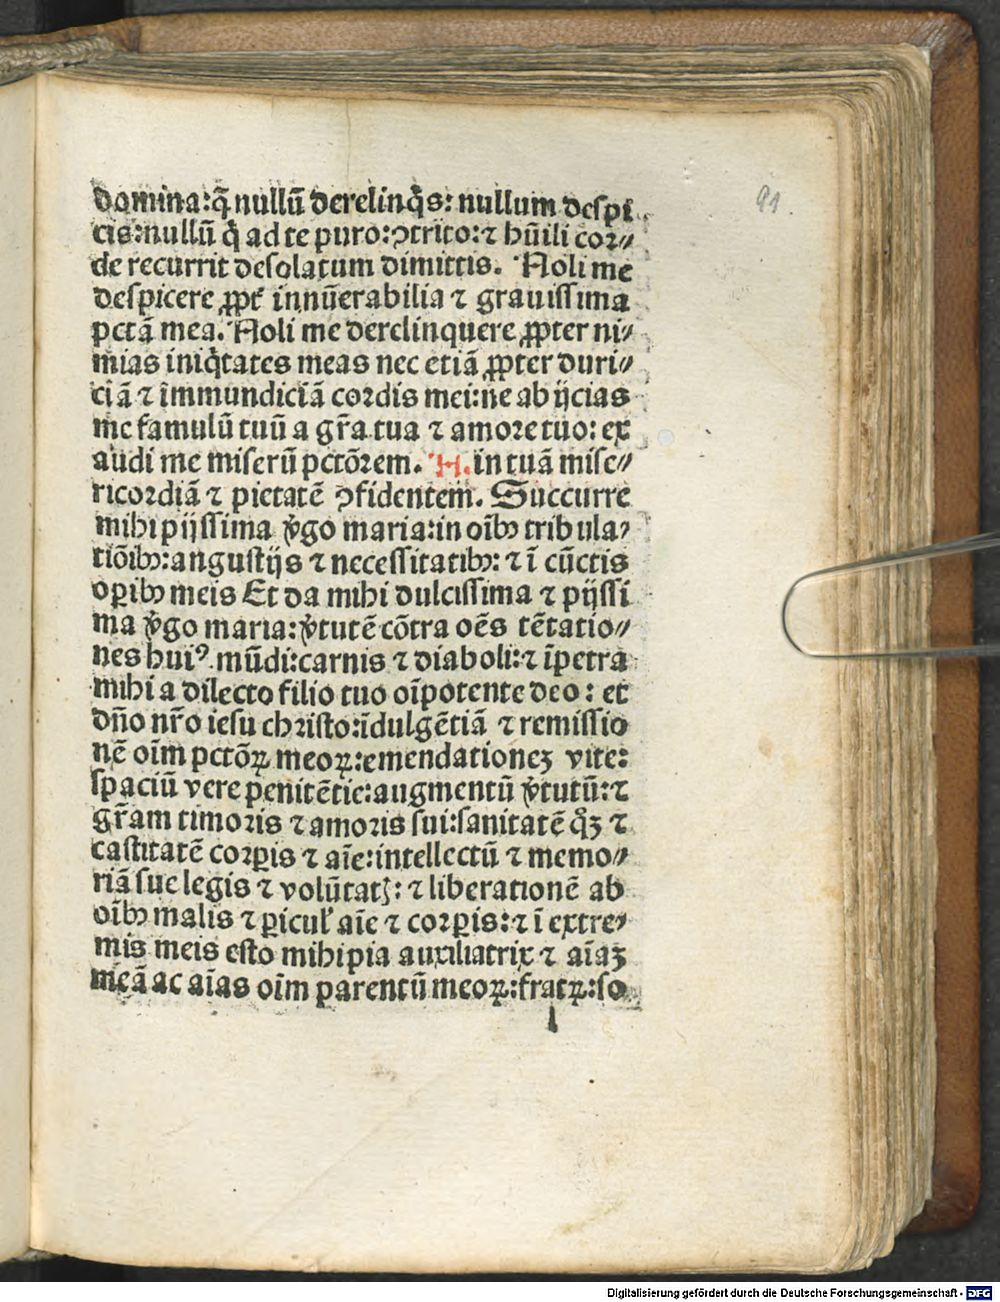 91
domina:q̄ nullū derelinq̇s: nullum despi
cis:nullū q̇ ad te puro:ꝯtrito:⁊ hūili cor⸗
de recurrit desolatum dimittis. Noli me
despicere ꝓpť innūerabilia ⁊ grauissima
pctā mea. Noli me derelinquere ꝓpter ni⸗
mias iniq̇tates meas nec etiā ꝓpter duri⸗
ciā ⁊ īmmundiciā cordis mei:ne ab ijcias
me famulū tuū a gr̄a tua ⁊ amore tuo: ex
audi me miserū pctōrem. N. in tuā mise⸗
ricordiā ⁊ pietatē ꝯfidentem. Succurre
mihi pijssima v̇go maria:in oībꝫ tribula⸗
tiōibꝫ:angustijs ⁊ necessitatibꝫ: ⁊ ī cūctis
oꝑibꝫ meis Et da mihi dulcissima ⁊ pijssi
ma v̇go maria: v̇tutē cōtra oēs tētatio⸗
nes huiꝰ mūdi:carnis ⁊ diaboli:⁊ īpetra
mihi a dilecto filio tuo oīpotente deo: et
dn̄o nr̄o iesu christo:īdulgētiā ⁊ remissio
nē oīm pctōꝝ meoꝝ:emendationeꝫ vite:
spaciū vere penitētie:augmentū v̇tutū:⁊
gr̄am timoris ⁊ amoris sui:sanitatē qͦꝫ ⁊
castitatē corꝑis ⁊ aīe:intellectū ⁊ memo⸗
riā sue legis ⁊ volūtatꝭ: ⁊ liberationē ab
oībꝫ malis ⁊ ꝑicul' aīe ⁊ corꝑis:⁊ ī extre⸗
mis meis esto mihi pia auxiliatrix ⁊ aīaꝫ
meā ac aīas oīm parentū meoꝝ:fratꝝ:so
Digitalisierung gefördert durch die Deutsche Forschungsgemeinschaft - DFG